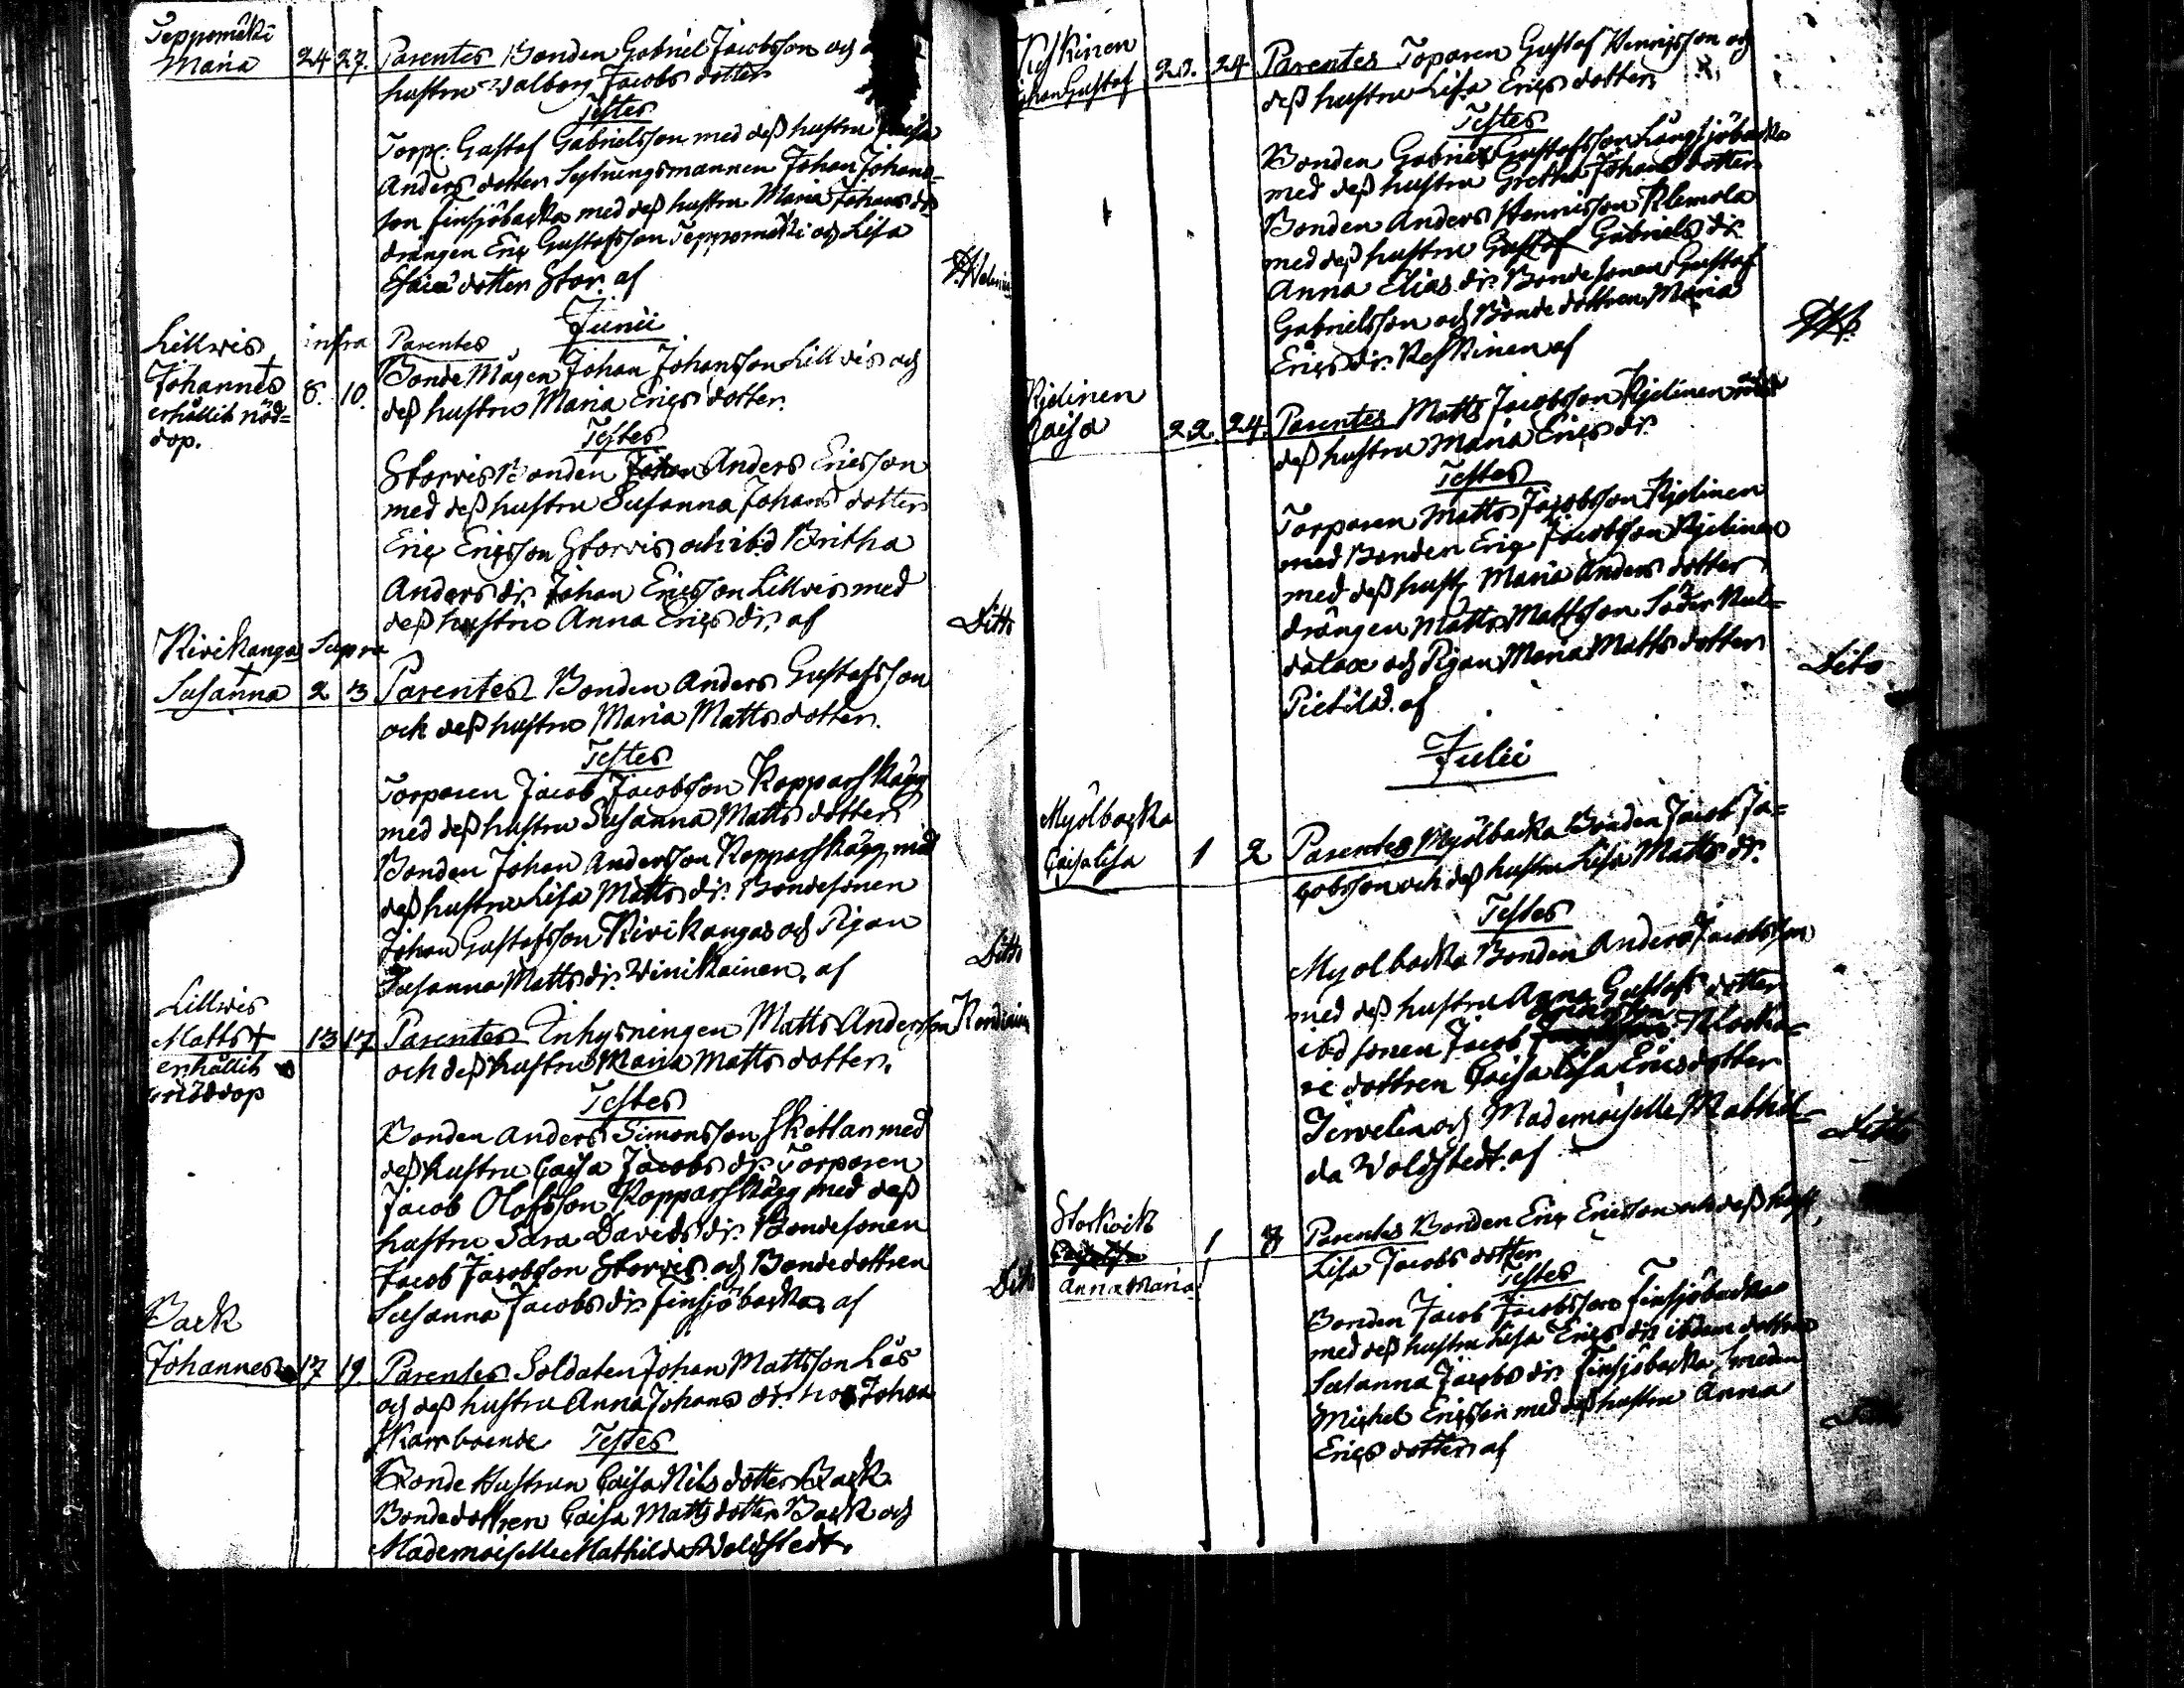 Teppomäki
Maria 24 27. Parentes Bonden Gabriel Jacobsson och
hustru Valborg Jacobs dotter
Testes
Torp. Gustaf Gabrielsson med deß hustru Caisa
Anders dotter Sextningsmannen Johan Johans-
son Finsjöbacka med deß hustru Maria Johans dr
drängen Eric Gustafsson Teppomäki och Lisa
Esaiæ dotter Stor. af
Junii
Lillvis infra Parentes
Johannes † 8. 10. Bonde Mågen Johan Johansson Lillvis och
erhållit nöd= deß hustru Maria Erics dotter.
dop.
Testes
Storvis Bonden Johan Anders Ericsson
med deß hustru Susanna Johans dotter
Eric Ericsson Storvis och ibd Britha
Anders dr. Johan Ericsson Lillvis med
deß hustru Anna Erics dr. af Ditto
Kivikangas Supra
Susanna † 2 3 Parentes Bonden Anders Gustafsson
och deß hustru Maria Matts dotter.
Testes
Torparen Jacob Jacobsson Kopparskägg
med deß hustru Susanna Matts dotter
Bonden Johan Andersson Kopparskägg med
deß hustru Lisa Matts dr. Bondesonen
Johan Gustafsson Kivikangas och Pigan
Susanna Matts dr. Winikainen. af Ditto
Lillvis
Matts † 13 17 Parentes Inhysningen Matts Andersson
erhållit och deß hustru Maria Matts dotter.
nöddop
Testes
Bonden Anders Simonsson Skottan med
deß hustru Caisa Jacobs dr. Torparen
Jacob Olofsson Kopparskägg med deß
hustru Sara Davids dr. Bondesonen
Jacob Jacobsson Storvis och Bondedottren
Susanna Jacobs dr. Finsjöbacka, af Dito
Back
Johannes 17 19. Parentes Soldaten Johan Mattsson Lås
och deß hustru Anna Johans dr. hos Johan
Testes
Bonde Hustrun Caisa Nils dotter Back
Bondedottren Caisa Matts dotter Back och
Mademoiselle Mathilda Woldstedt.
Keskinen
Johan Gustaf 23. 24 Parentes Toparen Gustaf Henricsson och
deß hustru Lisa Erics dotter
Testes
Bonden Gabriel Gustafsson Långsjöbacka
med deß hustru Gretha Johans dotter
Bonden Anders Henricsson Klemola
med deß hustru Gustaf Gabriels dr.
Anna Elias dr. Bondesonen Gustaf
Gabrielsson och Bonde dottren Maria
Erics dr. Keskinen af
Kjelinen
Caisa 22. 24. Parentes Matts Jacobsson Kjelinen och
deß hustru Maria Erics dr.
Testes
Torparen Matts Jacobsson Kjelinen
med Bonden Eric Jacobsson Kjelinen
med deß hust. Maria Anders dotter
drängen Matts Mattsson Söder Nul=
och Pigan Maria Matts dotter
Pietilä. af Dito
Julii
Myölbacka
Caisa Lisa 1 2 Parentes Myölbacka Bonden Jacob Ja=
cobsson och deß hustru Lisa Matts dr.
Testes
Myolbacka Bonden Anders Jacobsson
med deß hustru Anna Gustafs dotter
ibd sonen Jacob Klocka-
re dottren Caisa Lisa Ericsdotter
Jervelin och Mademoiselle Mathil-
da Woldstedt. af Ditto
Storkvist
Anna Maria 1 8 Parentes Bonden Eric Ericsson och deß hust.
Lisa Jacobs dotter
Testes
Bonden Jacob Jacobsson Finsjöbacka
med deß hustru Lisa Erics dr. ibdem dottren
Susanna Jacobs dr. Finsjöbacka, smeden
Michel Ericsson med deß hustru Anna
Erics dotter af Ditto